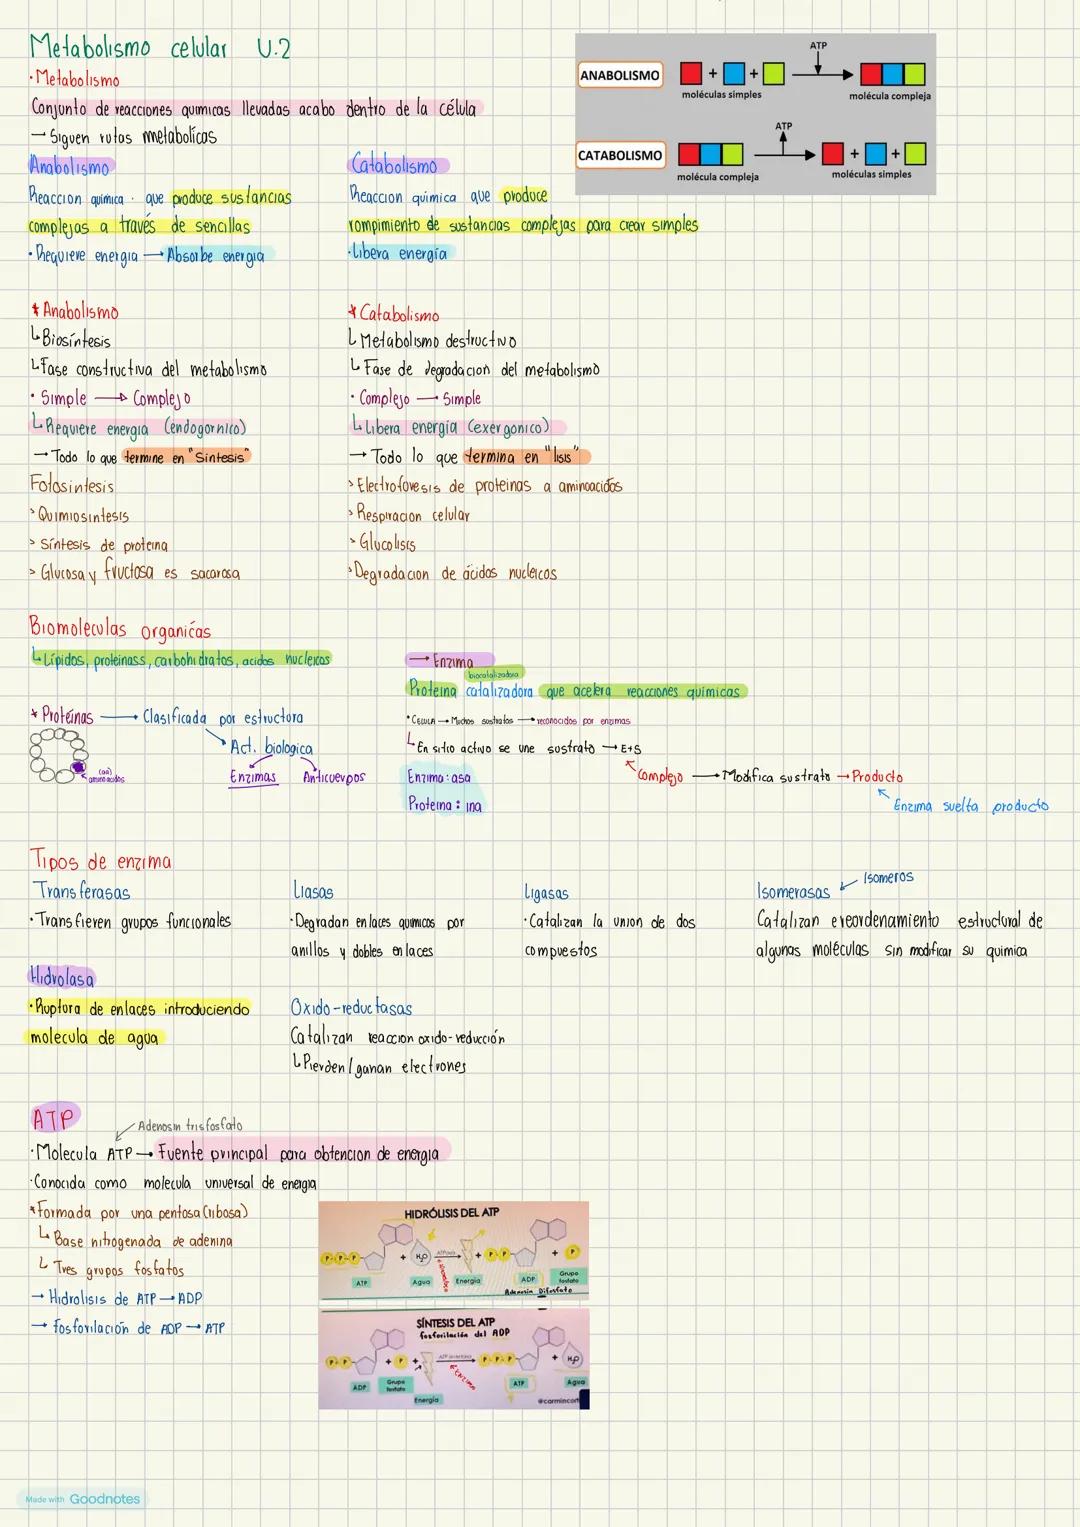 Metabolismo celular U.2
· Metabolismo
Conjunto de reacciones quimicas llevadas acabo dentro de la célula
→ Siguen rutas metabolicas
ANABOLISMO
+ +
ATP
moléculas simples
molécula compleja
CATABOLISMO
ATP
+ +
molécula compleja
moléculas simples
Anabolismo
Reaccion quimica · que produce sustancias
complejas a través de sencillas
· Requiere energia → Absorbe energia
Catabolismo
Reaccion quimica que produce
rompimiento de sustancias complejas para crear simples
· Libera energía
* Anabolismo
↳ Biosíntesis
↳ Fase constructiva del metabolismo
· Simple → Complejo
↳ Requiere energia (endogornico)
→ Todo lo que termine en "Sintesis"
Fotosintesis
> Quimiosintesis
> Síntesis de proteina
> Glucosa y fructosa es sacarosa
* Catabolismo
↳ Metabolismo destructivo
↳ Fase de degradacion del metabolismo
· Complejo → Simple
↳ Libera energía (exergonico)
→ Todo lo que termina en "lisis"
> Electroforesis de proteinas a aminoacidos
> Respiracion celular
> Glucolisis
> Degradacion de ácidos nucleicos
Biomoleculas organicas
↳ Lípidos, proteinass, carbohidratos, acidos nucleicos
* Proteínas → Clasificada por estructura
Act. biologica
Enzimas Anticuerpos
(aa)
aminoacidos
→ Enzima
biocatalizadora
Proteina catalizadora que acelera reacciones quimicas
· Celula → Muchos sustratos → reconocidos por enzimas
↳ En sitio activo se une sustrato → E+S
Complejo → Modifica sustrato → Producto
Enzima suelta producto
Enzima: asa
Proteina: ina
Tipos de enzima
Transferasas
· Transfieren grupos funcionales
Liasas
· Degradan enlaces quimicos por
anillos y dobles enlaces
Ligasas
· Catalizan la union de dos
compuestos
Isomerasas
Isomeros
Catalizan ereordenamiento estructural de
algunas moléculas sin modificar su quimica
Hidrolasa
· Ruptura de enlaces introduciendo
molecula de agua
Oxido-reductasas
Catalizan reaccion oxido-reducción
↳ Pierden/ganan electrones
ATP
Adenosin trisfosfato
· Molecula ATP → Fuente principal para obtencion de energia
· Conocida como molecula universal de energia
* Formada por una pentosa (ribosa)
↳ Base nitrogenada de adenina
↳ Tres grupos fosfatos
→ Hidrolisis de ATP → ADP
→ Fosforilación de ADP → ATP
HIDRÓLISIS DEL ATP
P P P + H₂O ATPasa + P P + P
ATP Agua Energía ADP Grupo fosfato
Adenosin Difosfato
SÍNTESIS DEL ATP
fosforilación del ADP
P P + P + P P P + H₂O
enzima
ADP Grupo fosfato Energía ATP Agua
@carmincort
Made with Goodnotes